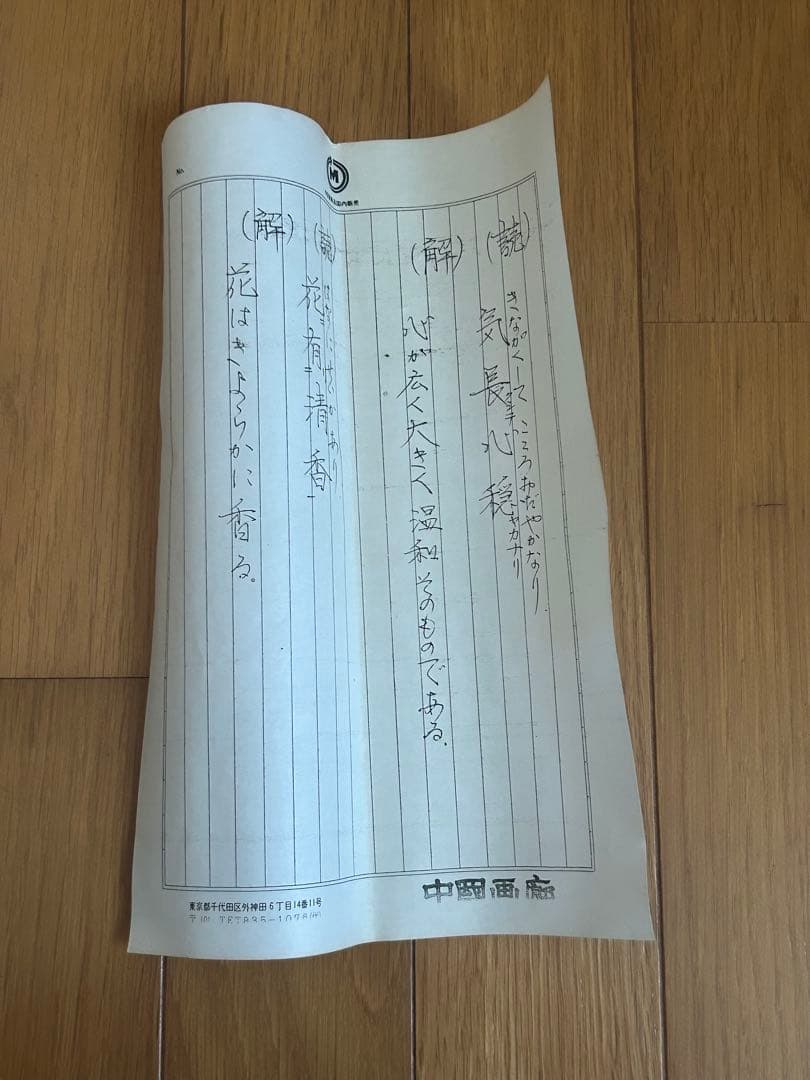 No.
(読)
きながくしてこころおだやかなり
気長心穏
ヤカナリ
(解)
心が広く大きく温和そのものである。
(読)
花有清香
(解)
花はきよらかに香る。
中国画廊
東京都千代田区外神田6丁目14番11号